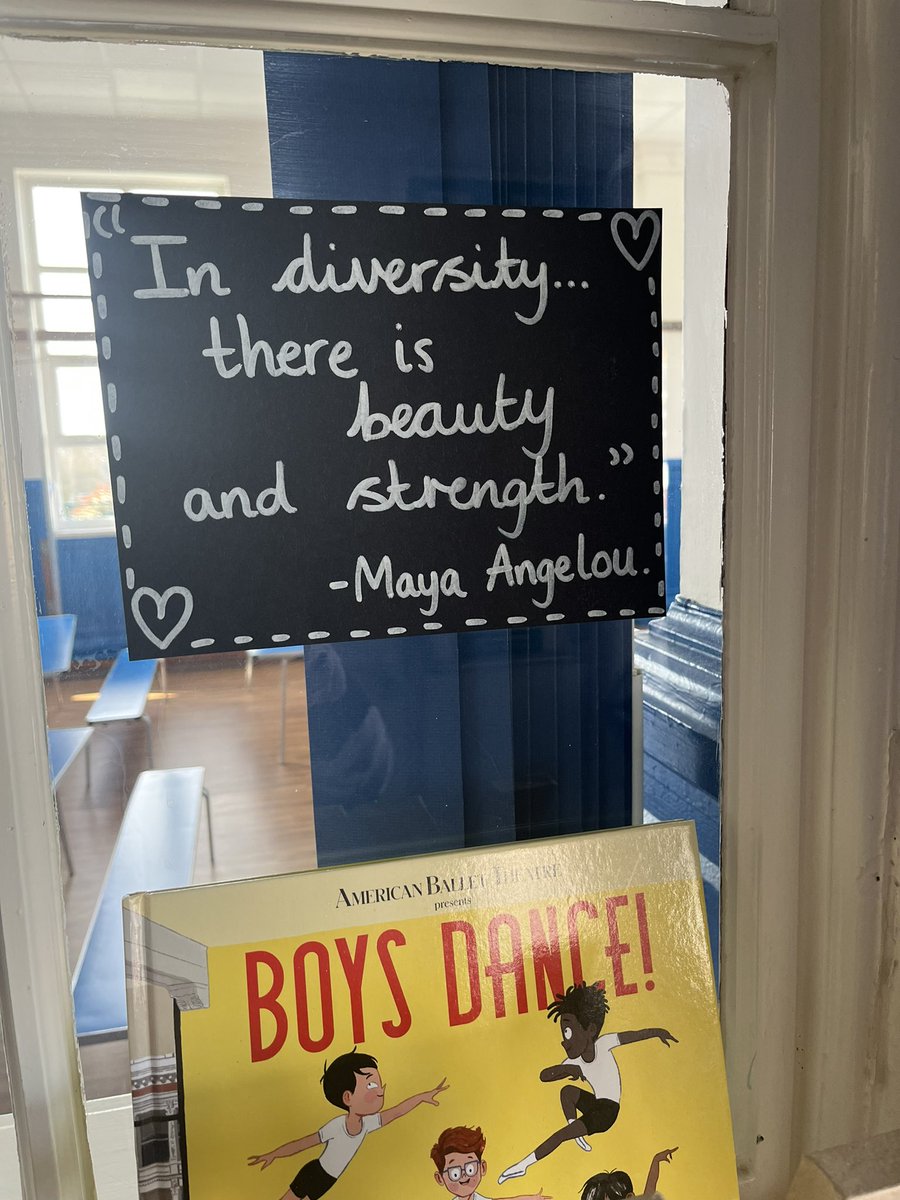 “In diversity...
there is
beauty
and strength.”
-Maya Angelou.
AMERICAN BALLET THEATRE
presents
BOYS DANCE!